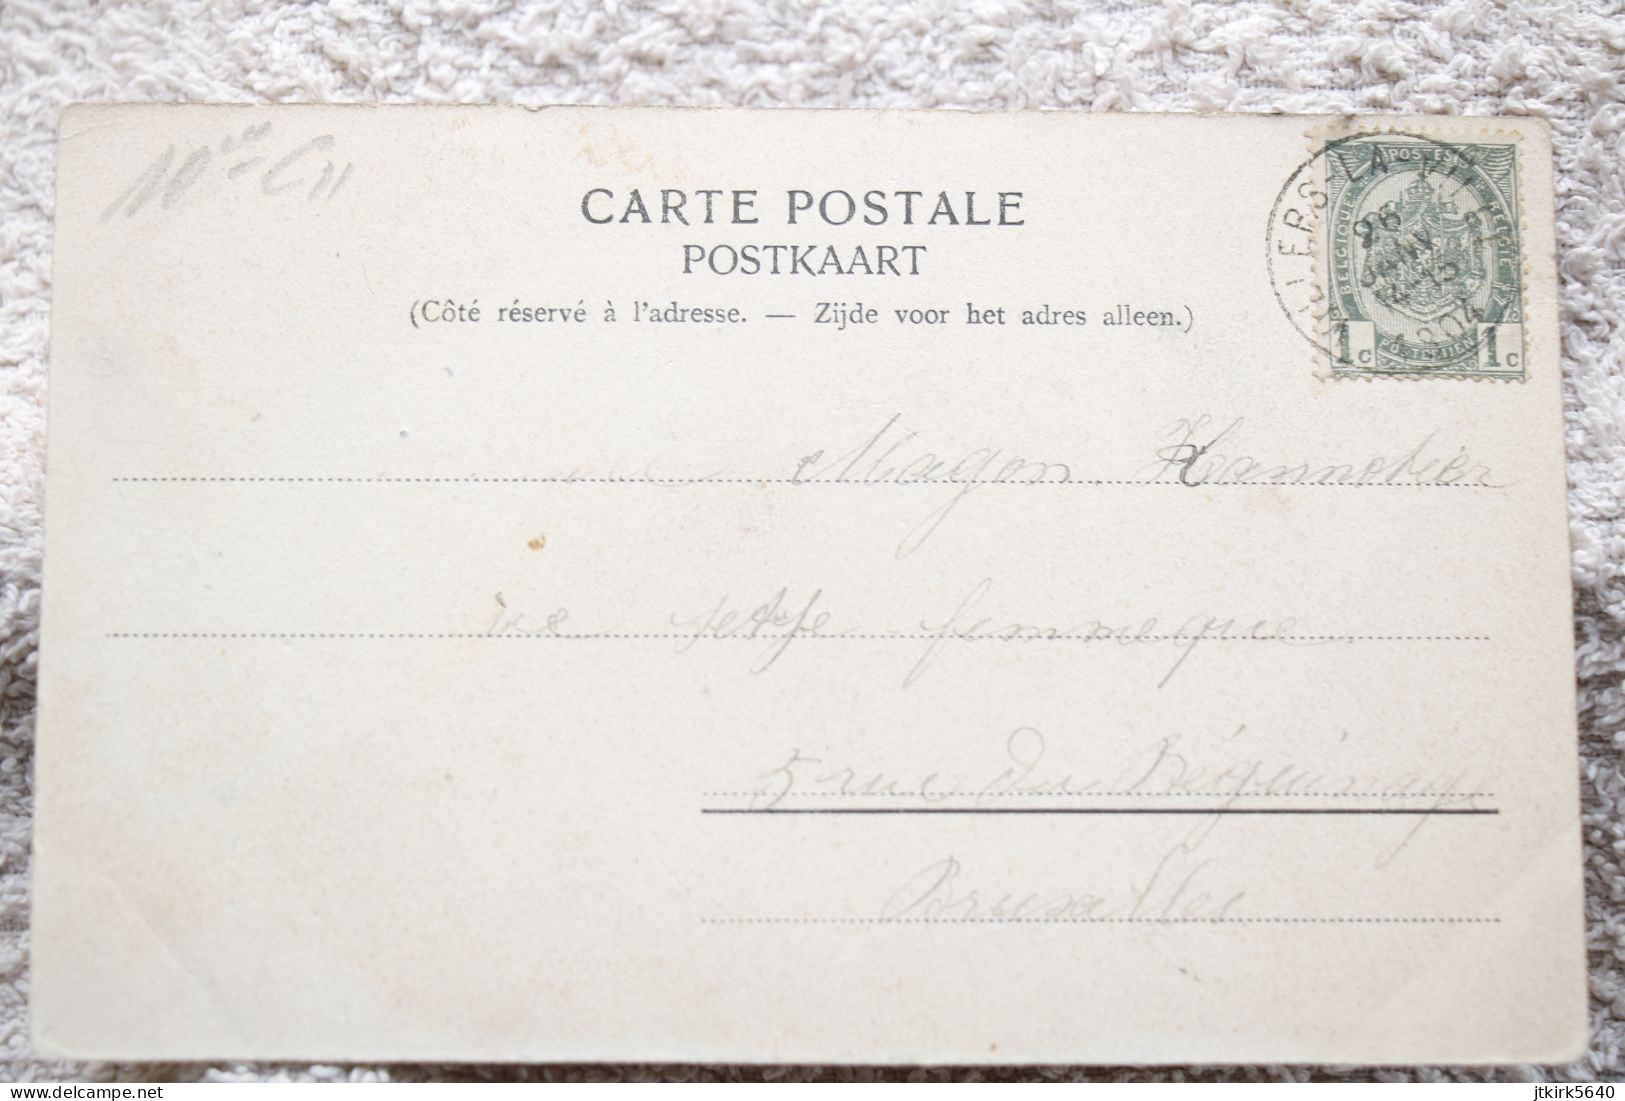 CARTE POSTALE
POSTKAART
(Côté réservé à l'adresse. — Zijde voor het adres alleen.)
POSTES
BELGIQUE BELGIE
POSTERIJEN
1 c 1 c
VILLERS-LA-VILLE
26
JANV
1904
Magon Hannotier
femmeque
5 rue du Béguinage
Bruxelles
delcampe.net
jtkirk5640